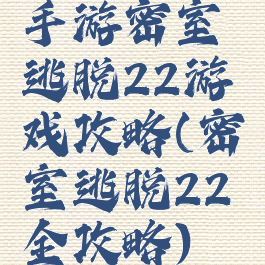 手游密室
逃脱22游
戏攻略(密
室逃脱22
全攻略)